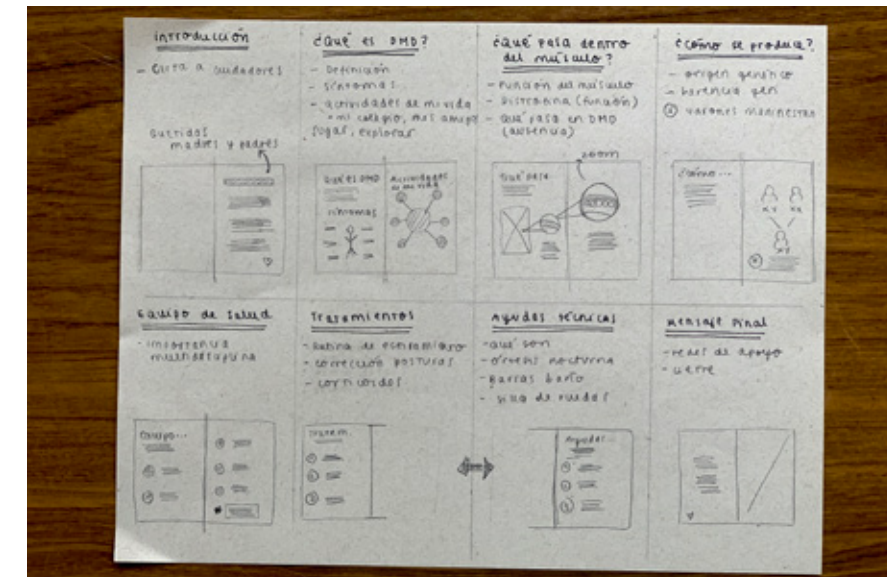 introducción
- Carta a cuidadores
Queridos
madres y padres
¿Qué es DMD?
- Definición
- síntomas
- actividades de mi vida
mi colegio, mis amigos
jugar, explorar
Qué es DMD
síntomas
Actividades
de mi vida
¿Qué pasa dentro
del músculo?
- Función del músculo
- Distrofina (función)
- Qué pasa en DMD
(ausencia)
zoom
Qué pasa
¿Cómo se produce?
- origen genético
- herencia gen
varones manifiestan
¿Cómo...
Equipo de salud
- importancia
multidisciplina
Equipo...
Tratamientos
- Rutina de estiramiento
- corrección posturas
- corticoides
Tratam.
Ayudas técnicas
- qué son
- órtesis nocturna
- Barras baño
- silla de ruedas
Ayudas...
Mensaje Final
- redes de apoyo
- cierre